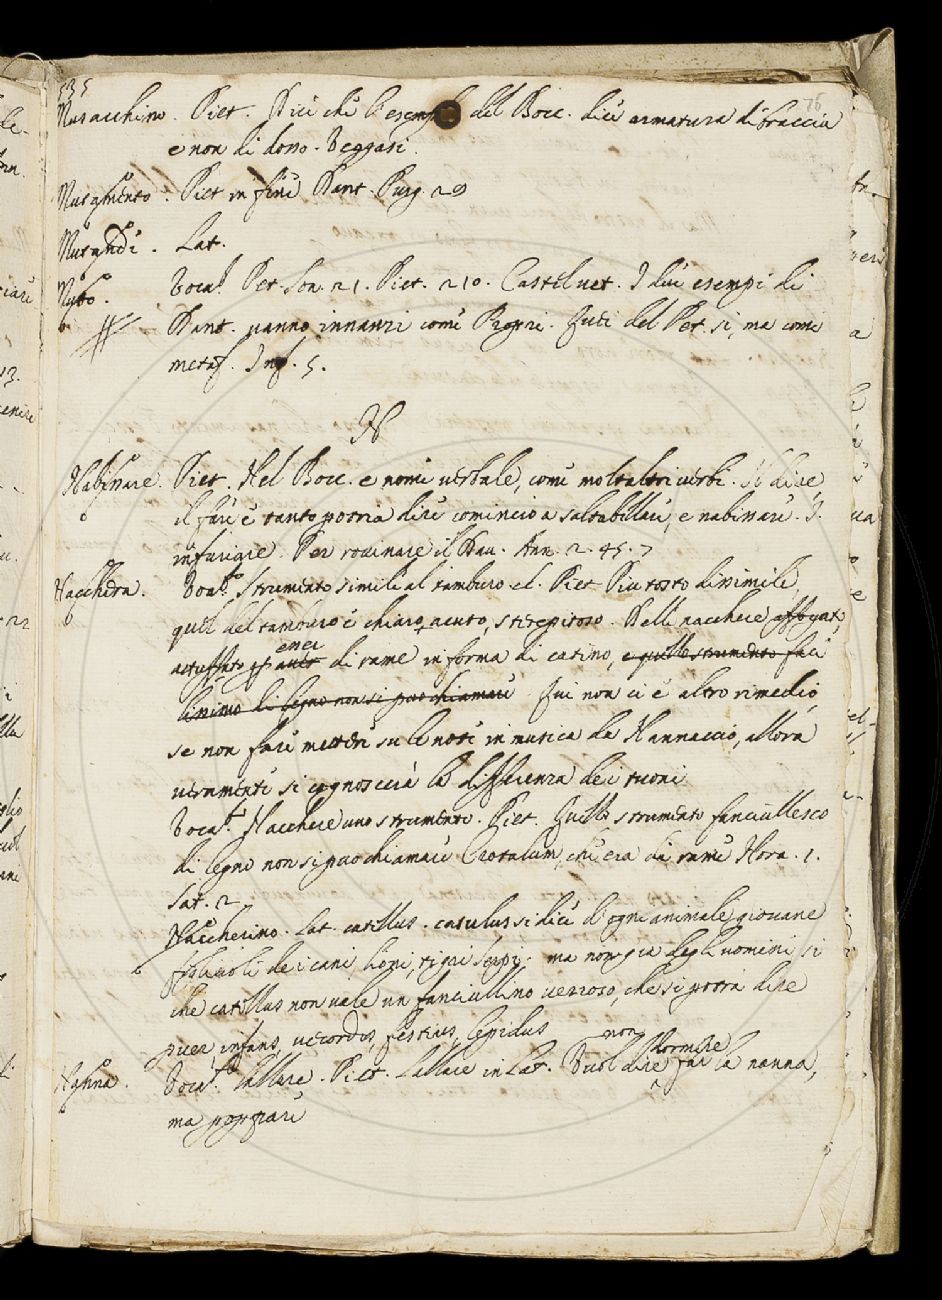 535
76
Musacchino. Piet. Dici che l'esempio del Bocc. dice armatura di braccia
e non di dosso. Veggasi.
Piet in fine Dant. Purg. 29
Lat.
Vocab. Pet. Son. 21. Piet. 210. Castelvet. I due esempi di
Dant. vanno innanzi come Propri. Quei del Pet. si, ma come
metaf. Inf. 5.
N
Nabissare. Piet. Nel Bocc. e nome verbale, come molti altri verbi. Il dire
il fare è tanto potria dire cominciò a saltabillare, e nabissare. I.
infuriare. Per rovinare il Dav. Ann. 2. 45. 7
Nacchera. Vocab. Strumento simile al tamburo el. Piet Piu tosto dissimile,
quel del tamburo è chiaro, acuto, strepitoso. Delle nacchere
attuffato di rame in forma di catino, e quello strumento faci
lissimo di legno non si puo chiamare Qui non ci è altro rimedio,
se non fare mettere su le note in musica da Nannaccio, allora
veramente si cognoscerà la differenza dei tuoni
Vocab. Nacchere uno strumento. Piet. Quello strumento fanciullesco
di legno non si puo chiamare Crotalum, che era di rame Hora. 1.
Sat. 2
Naccherino. Lat. catillus. catulus si dice d'ogni animale giovane
figliuoli dei cani lioni, tigri serpi. ma non gia degl'uomini si
che catillus non vale un fanciullino vezzoso, che si potrà dire
puer, infans, festivus, lepidus
non dormire
Vocab. lallare. Piet. Lallare in Lat. Vuol dire far la nanna,
ma poppare